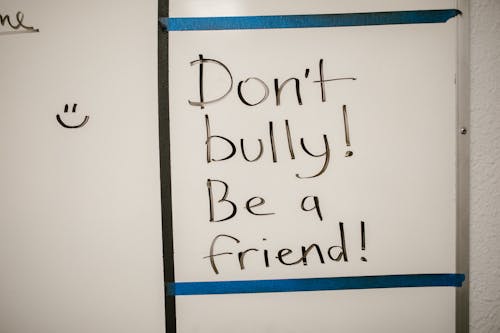 Don't
bully!
Be a
friend!